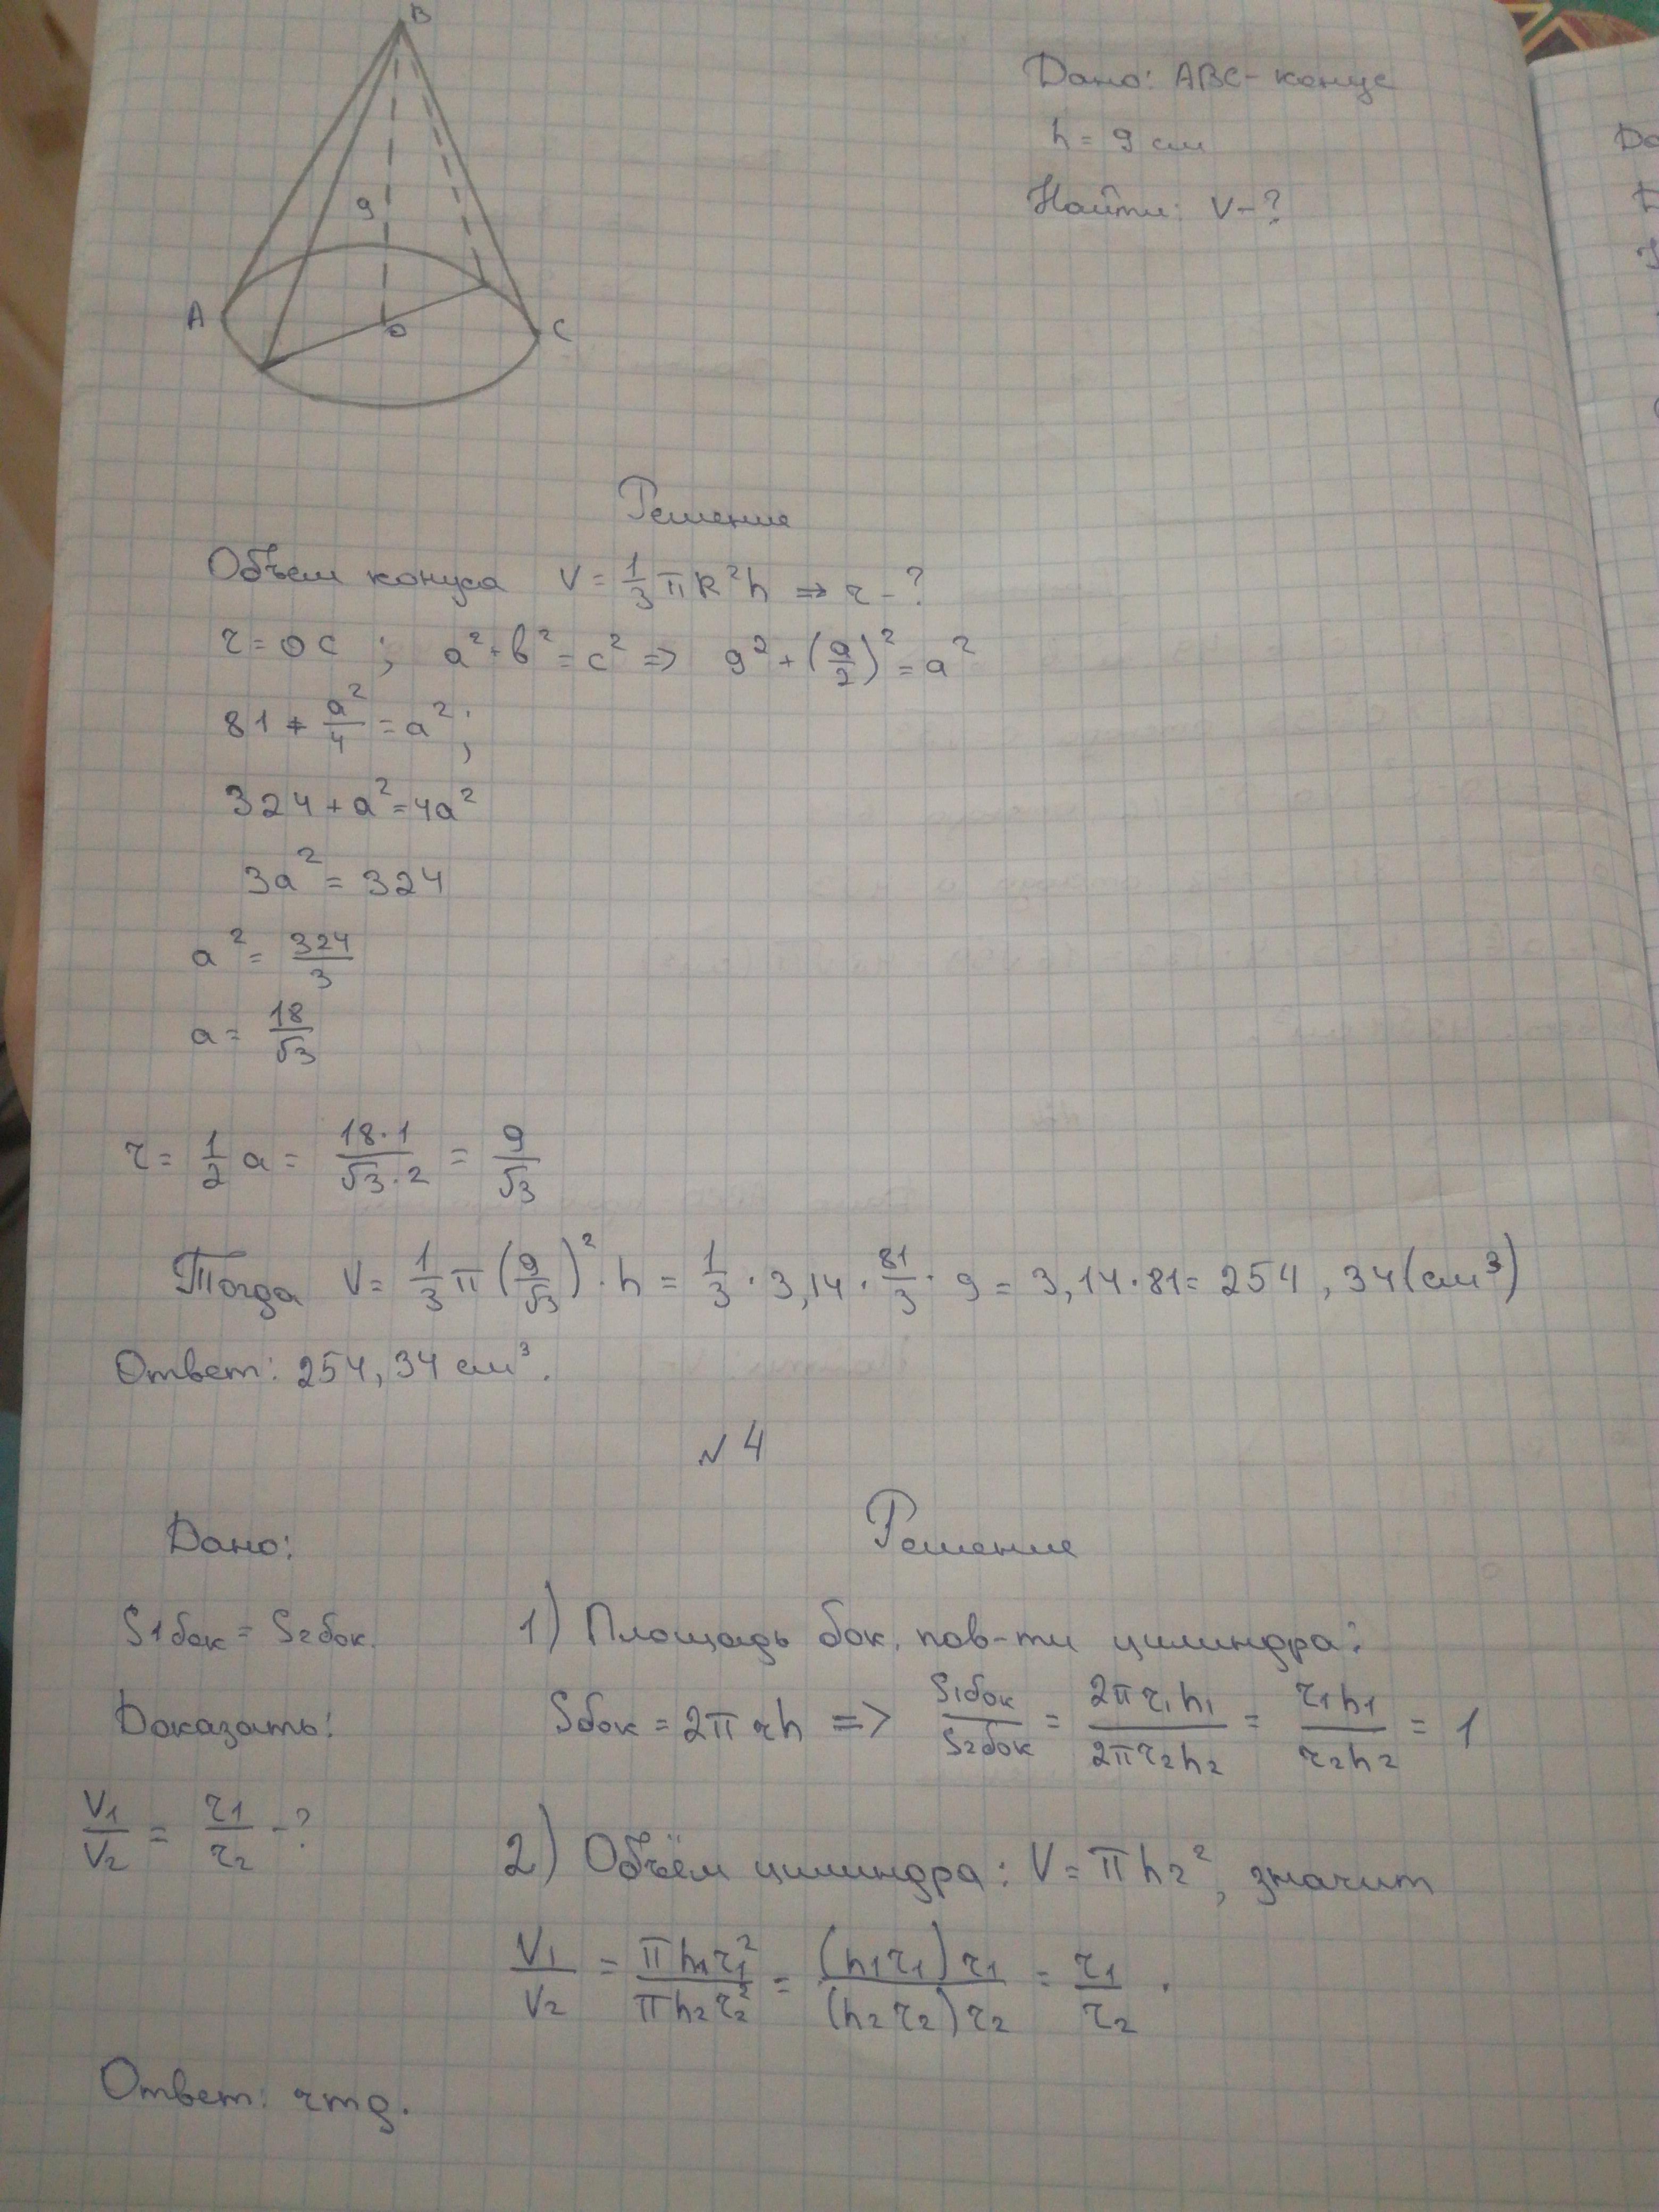 B
Дано: ABC - конус
h = 9 см
Найти: V - ?
9
A
O
C
Решение
Объем конуса V = 1/3 πR²h ⇒ r - ?
r = OC ; a² + b² = c² ⇒ 9² + (a/2)² = a²
81 + a²/4 = a² ;
324 + a² = 4a²
3a² = 324
a² = 324/3
a = 18/√3
r = 1/2 a = 18·1/√3·2 = 9/√3
Тогда V = 1/3 π (9/√3)² · h = 1/3 · 3,14 · 81/3 · 9 = 3,14·81 = 254,34 (см³)
Ответ: 254,34 см³.
№4
Дано:
S1бок = S2бок.
Доказать:
V1/V2 = r1/r2 - ?
Решение
1) Площадь бок. пов-ти цилиндра:
Sбок = 2πrh => S1бок/S2бок = 2πr1h1/2πr2h2 = r1h1/r2h2 = 1
2) Объём цилиндра: V = πhr², значит
V1/V2 = πh1r1²/πh2r2² = (h1r1)r1/(h2r2)r2 = r1/r2.
Ответ: чтд.